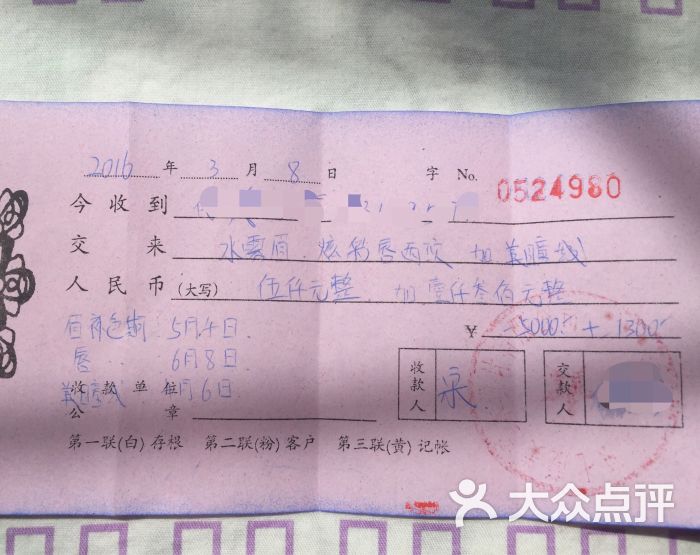 2016 年 3 月 8 日 字 No. 0524980
今收到
交来 水雲眉 炫彩唇两次 加美瞳线
人民币(大写) 伍仟元整 加 壹仟叁佰元整
¥ 5000 + 1300
眉补色 5月4日
唇 6月8日
美瞳线 月6日
收款单位公章
收款人
交款人
第一联(白)存根 第二联(粉)客户 第三联(黄)记帐
大众点评